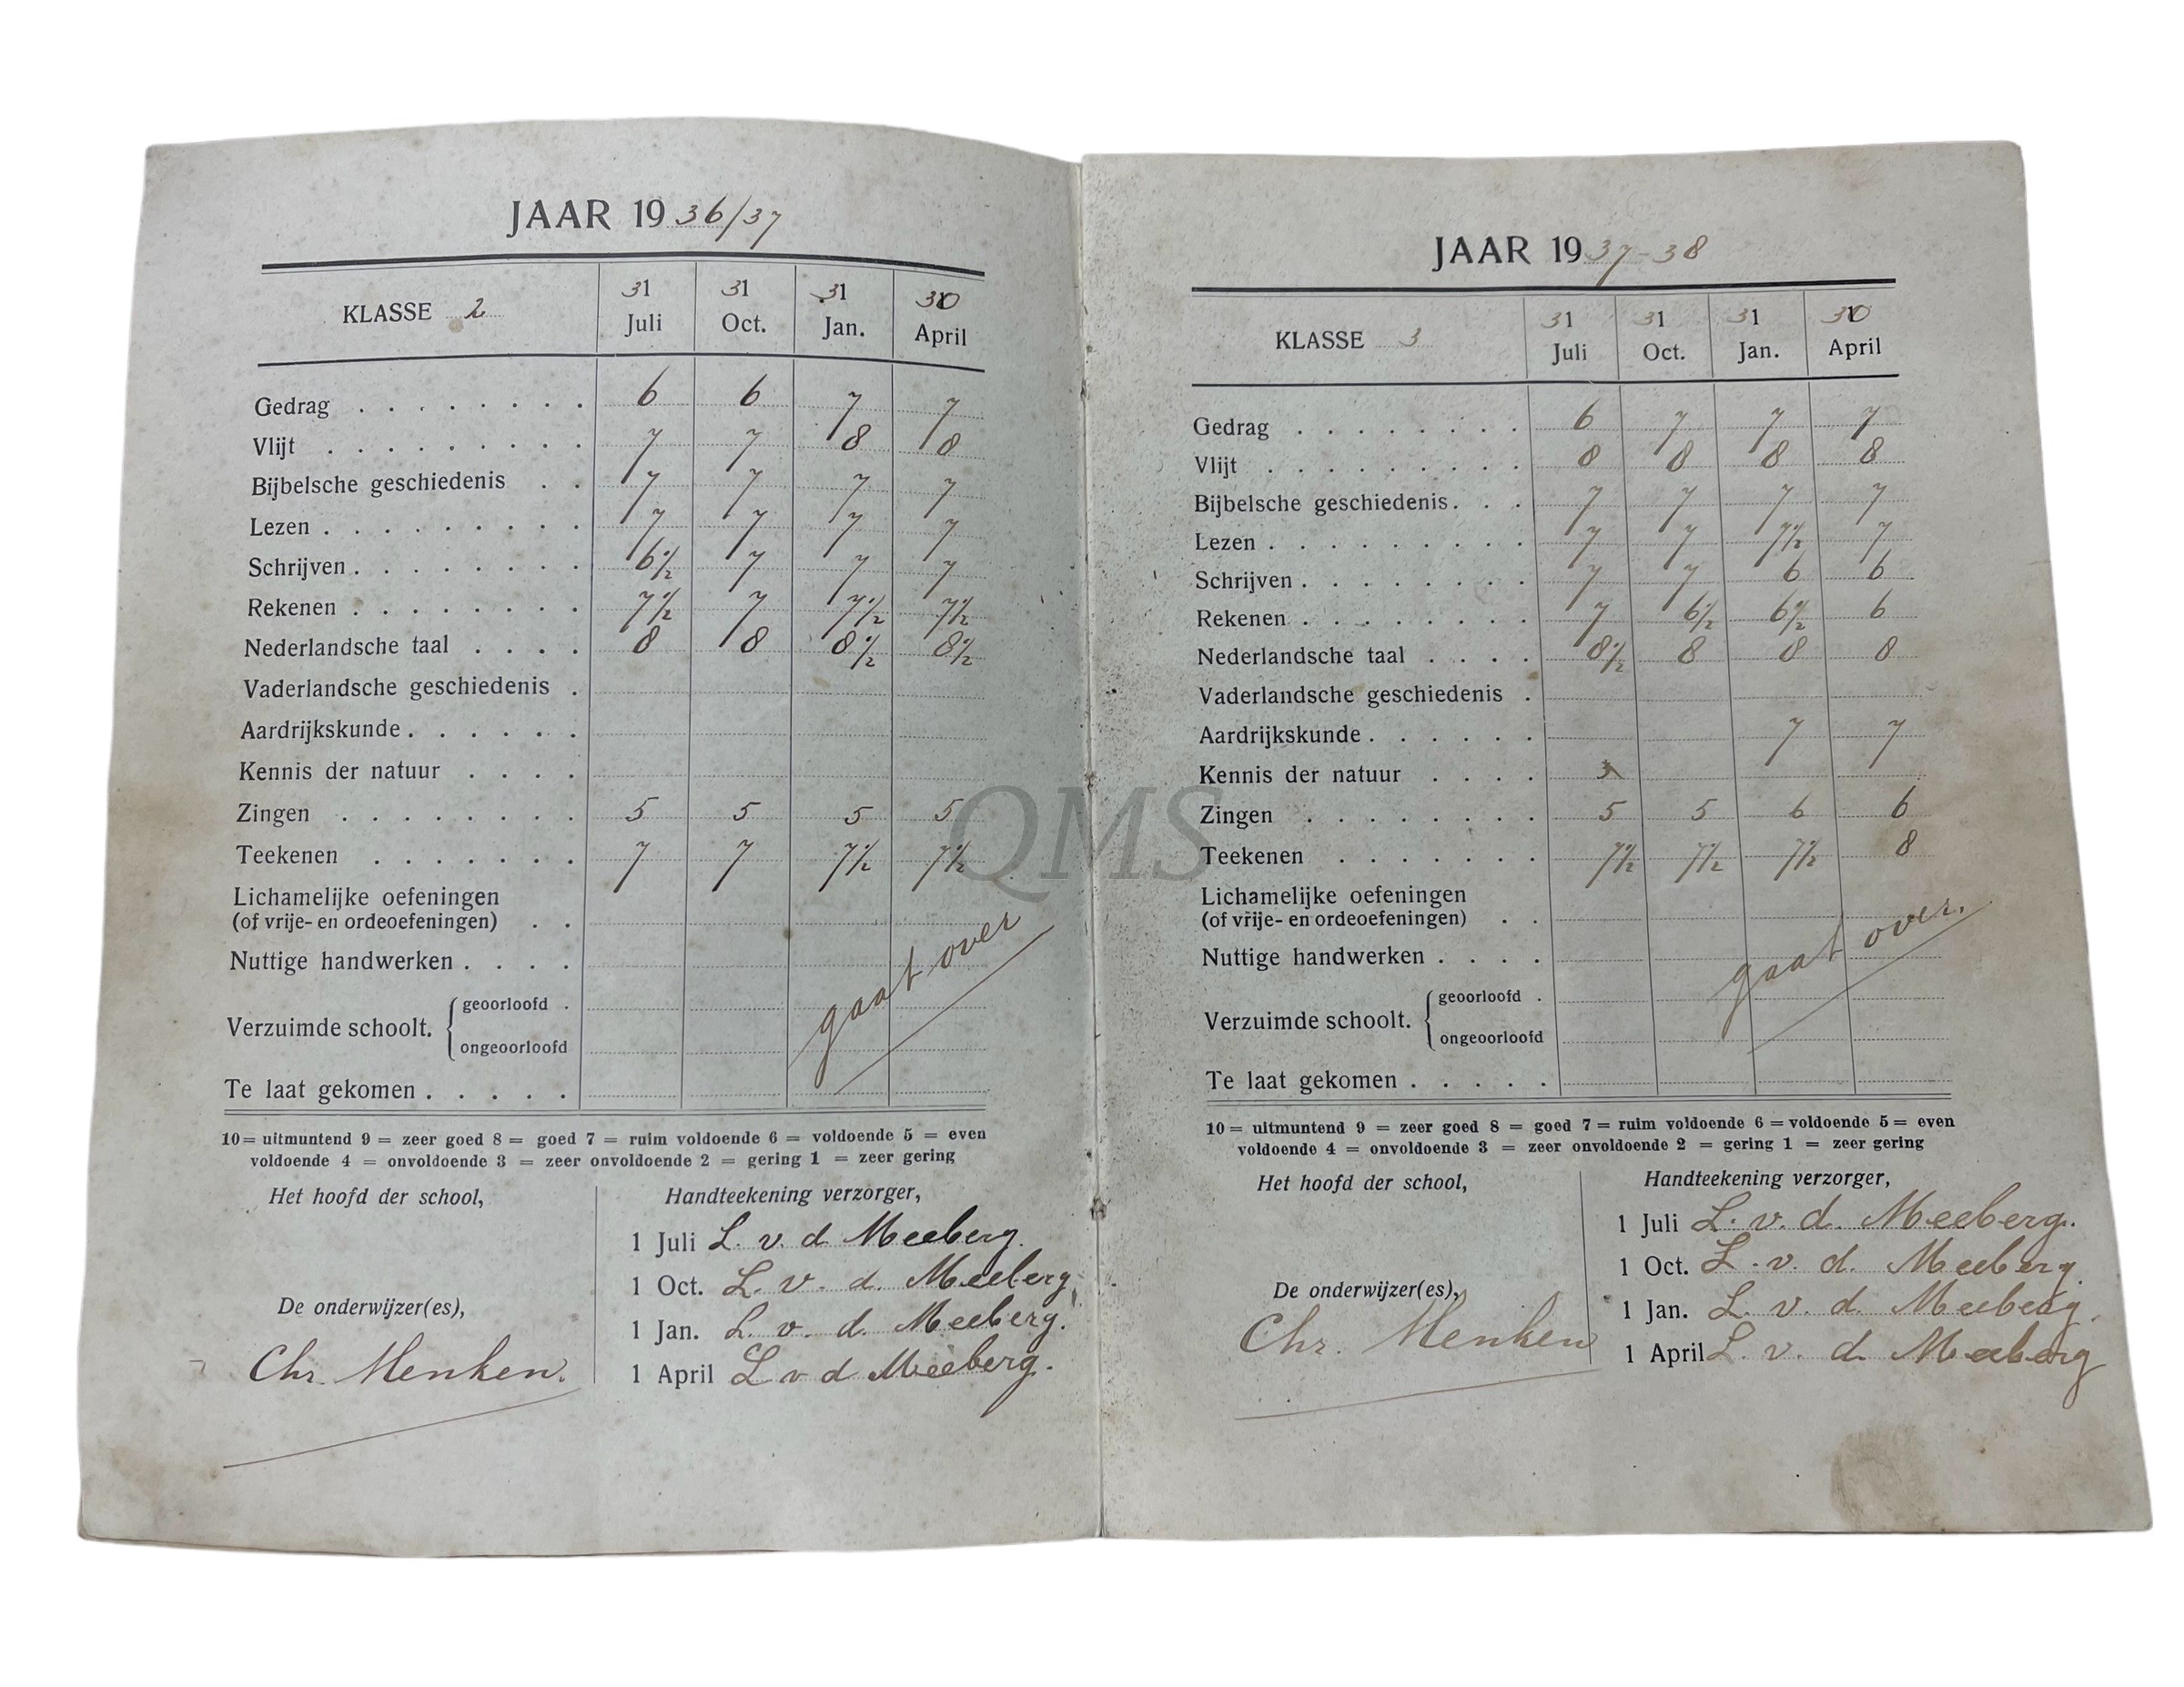 JAAR 1936/37
KLASSE 2
31 Juli 31 Oct. 31 Jan. 30 April
Gedrag . . . . . . . . 6 6 7 7
Vlijt . . . . . . . . . 7 7 8 8
Bijbelsche geschiedenis . . 7 7 7 7
Lezen . . . . . . . . . 7 7 7 7
Schrijven . . . . . . . . 6½ 7 7 7
Rekenen . . . . . . . . 7½ 7 7½ 7½
Nederlandsche taal . . . . 8 8 8½ 8½
Vaderlandsche geschiedenis .
Aardrijkskunde . . . . . .
Kennis der natuur . . . .
Zingen . . . . . . . . 5 5 5 5
Teekenen . . . . . . . 7 7 7½ 7½
Lichamelijke oefeningen
(of vrije- en ordeoefeningen) . .
Nuttige handwerken . . . .
gaat over
Verzuimde schoolt. { geoorloofd .
ongeoorloofd
Te laat gekomen . . . . .
10 = uitmuntend 9 = zeer goed 8 = goed 7 = ruim voldoende 6 = voldoende 5 = even
voldoende 4 = onvoldoende 3 = zeer onvoldoende 2 = gering 1 = zeer gering
Het hoofd der school,
De onderwijzer(es),
Chr. Menken.
Handteekening verzorger,
1 Juli L. v. d Meeberg.
1 Oct. L. v. d. Meeberg.
1 Jan. L. v. d. Meeberg.
1 April L v d Meeberg.
JAAR 1937-38
KLASSE 3
31 Juli 31 Oct. 31 Jan. 30 April
Gedrag . . . . . . . . 6 7 7 7
Vlijt . . . . . . . . . 8 8 8 8
Bijbelsche geschiedenis . . . 7 7 7 7
Lezen . . . . . . . . . 7 7 7½ 7
Schrijven . . . . . . . . 7 7 6 6
Rekenen . . . . . . . . 7 6½ 6½ 6
Nederlandsche taal . . . . 8½ 8 8 8
Vaderlandsche geschiedenis .
Aardrijkskunde . . . . . . 7 7
Kennis der natuur . . . .
Zingen . . . . . . . . 5 5 6 6
Teekenen . . . . . . . 7½ 7½ 7½ 8
Lichamelijke oefeningen
(of vrije- en ordeoefeningen) . .
Nuttige handwerken . . . .
gaat over.
Verzuimde schoolt. { geoorloofd .
ongeoorloofd
Te laat gekomen . . . . .
10 = uitmuntend 9 = zeer goed 8 = goed 7 = ruim voldoende 6 = voldoende 5 = even
voldoende 4 = onvoldoende 3 = zeer onvoldoende 2 = gering 1 = zeer gering
Het hoofd der school,
De onderwijzer(es),
Chr. Menken
Handteekening verzorger,
1 Juli L. v. d. Meeberg.
1 Oct. L. v. d. Meeberg.
1 Jan. L. v. d. Meeberg.
1 April L. v. d. Meeberg
QMS